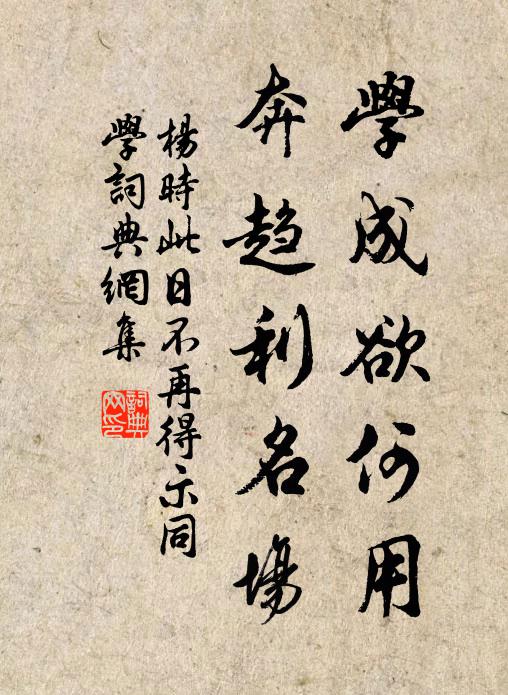 學成欲何用
奔趨利名場
楊時此日不再得示同
學詞典網集
詞典
网印